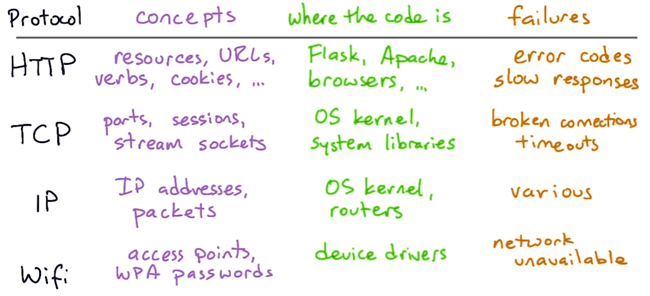 Protocol concepts where the code is failures
HTTP resources, URLs, verbs, cookies, ... Flask, Apache, browsers, ... error codes slow responses
TCP ports, sessions, stream sockets OS kernel, system libraries broken connections timeouts
IP IP addresses, packets OS kernel, routers various
Wifi access points, WPA passwords device drivers network unavailable